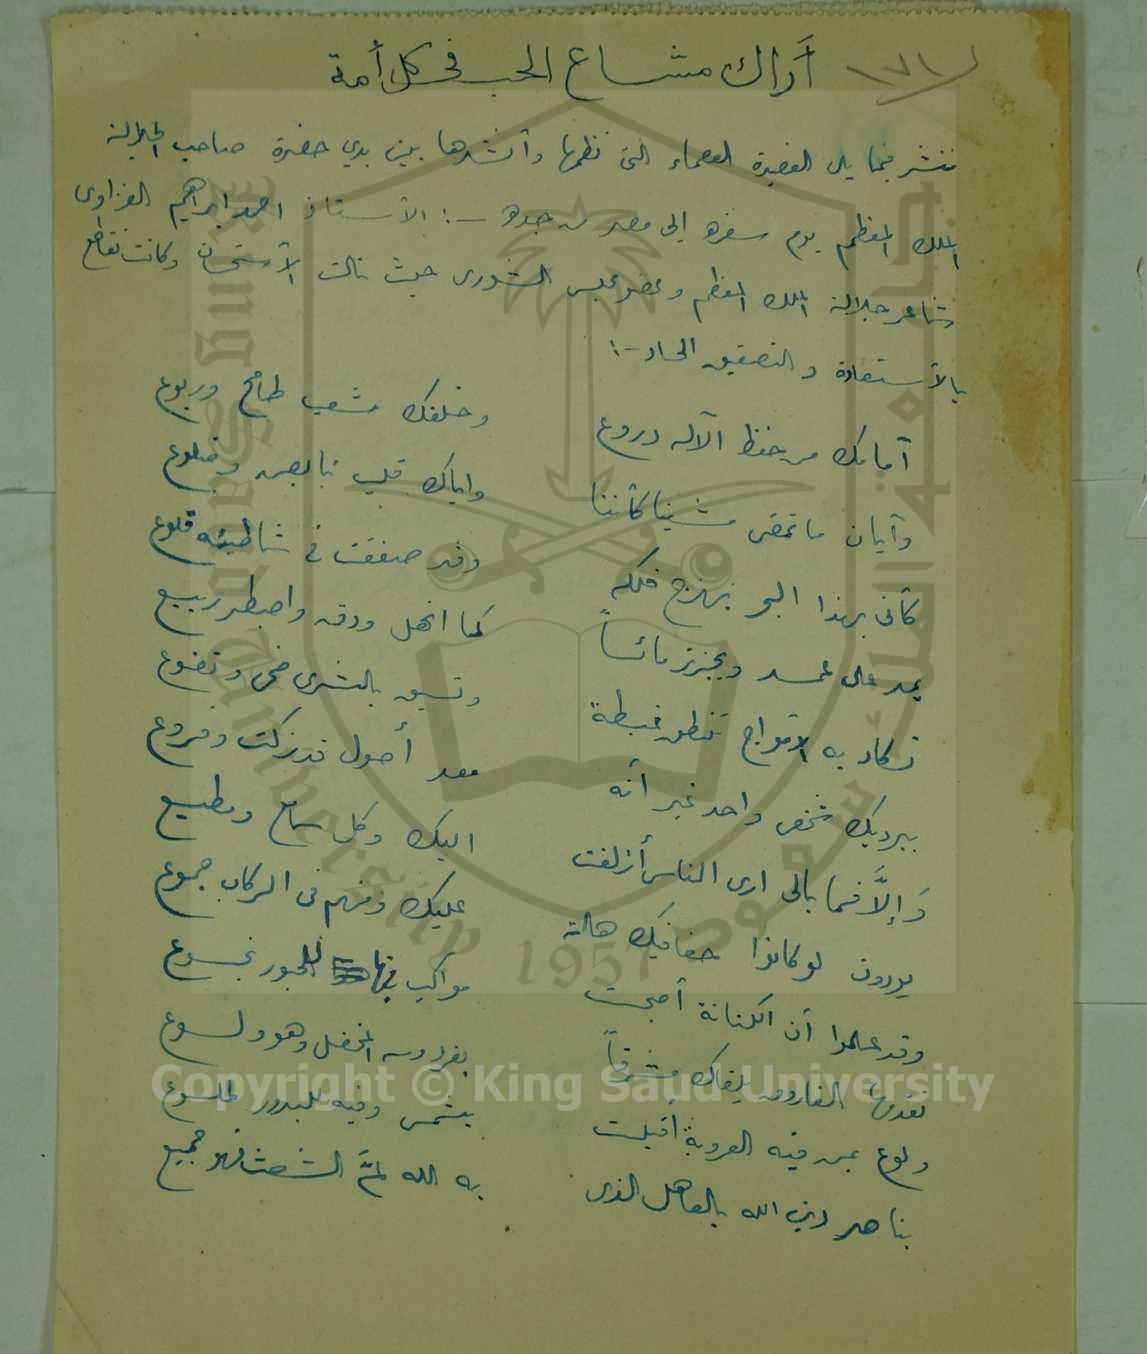 (١٧١) أراك مشاع الحب في كل أمة
ننشر فيما يلي القصيدة العصماء التي نظمها وأنشدها بين يدي حضرة صاحب الجلالة
الملك المعظم يوم سفره إلى مصر من جده -: الأستاذ احمد ابراهيم الغزاوى
شاعر جلالة الملك المعظم وعضو مجلس الشورى حيث نالت الأستحسان وكانت تقاطع
بالأستعادة والتصفيق الحاد -:
أمامك من حفظ الآله دروع وخلفك شعب طامح وربوع
وأيان ما تمضى مشينا كأننا واياك قلب نابض وضلوع
كأنى بهذا البحر يهزج فلكه وقد صفقت في شاطئيه قلوع
يمد على عمد ويجزر مائساً كما انهل ودقه واخضر ربيع
تكاد به الامواج تنطق غبطة وتسبق بالبشرى ضحى وتضوع
ببرديك شخص واحد غير أنه معد أصول قد زكت وفروع
وَإلاَّ فما بالى ارى الناس أزلفت اليك وكل سامع ومطيع
يودون لو كانوا حفافيك هالة عليك ومنهم في الركاب جموع
وقد علموا أن الكنانة أصبحت مواكب فيها للحبور تجوع
تقدمها الفاروق يلقاك مشرقاً بفردوسه المخضل وهو ولوع
ولوع بمن فيه العروبة اقبلت بشمس وفيه للبدور طلوع
بناصر دين الله بالعاهل الذى به الله لمَّ الشعث فهو جميع
Copyright © King Saud University
جامعة الملك سعود
King Saud University 1957